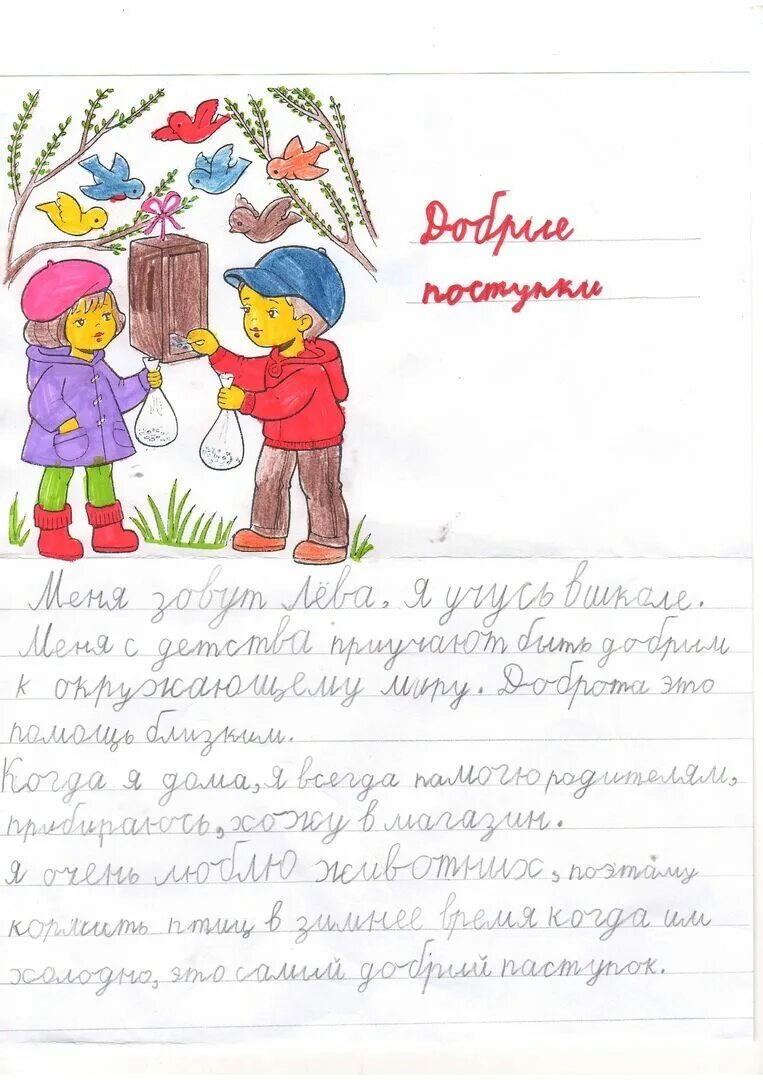 Добрие
поступки
Меня зовут Лёва, я учусь вшкале.
Меня с детства приучают быть добрим
к окружающему миру. Доброта это
помощь близким.
Когда я дома, я всегда памогю родителям,
прибираюсь, хожу в магазин.
я очень люблю животних, поэтаму
кормить птиц в зимнее время когда им
холодно, это самий добрий паступок.